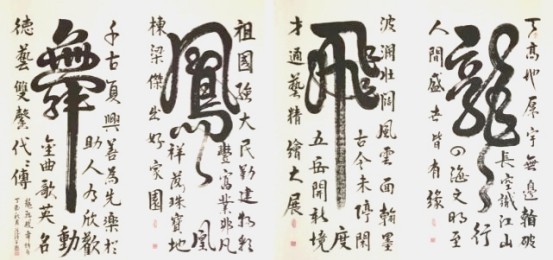 高地厚宇無邊
龍
長空識江山
行
四海文明至
人間盛世皆有緣
波瀾壯闊風雲面翰墨
飛
古今未停閑
度
五岳開新境
才通藝精繪大展
祖國強大民勤建物
鳳
豐富業非凡
凰
祥落珠寶地
棟梁傑出好家園
千古夏興善為先樂於
舞
助人為欣歡
動
金曲歌英名
德藝雙馨代代傳